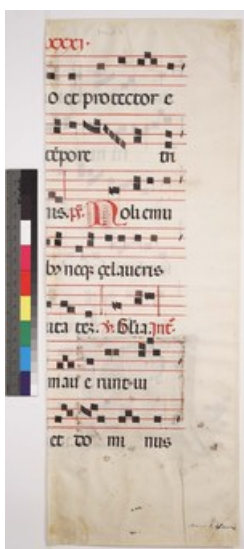 xxxi.
o et protector e
tēpore tri
nis. ps. Noli emu
bꝰ neqꝫ çelaveris
uta tē. ℣. Glīa. Int̃.
mav e runt iu
et do mi nus